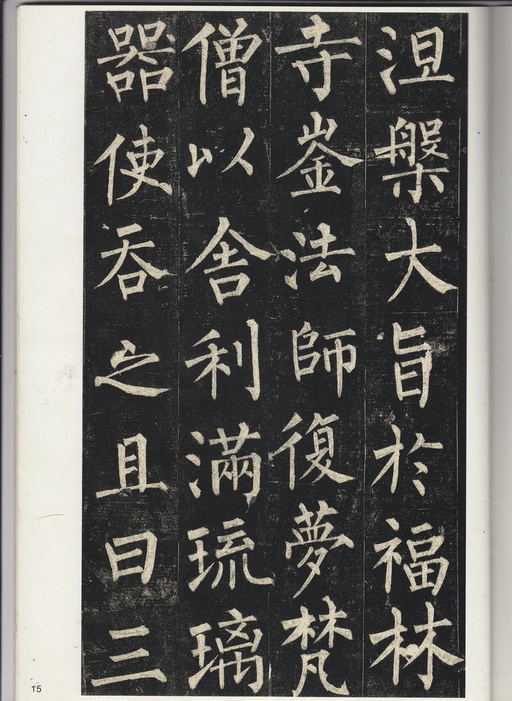 涅槃大旨於福林
寺崟法師復夢梵
僧以舍利滿琉璃
器使吞之且曰三
15